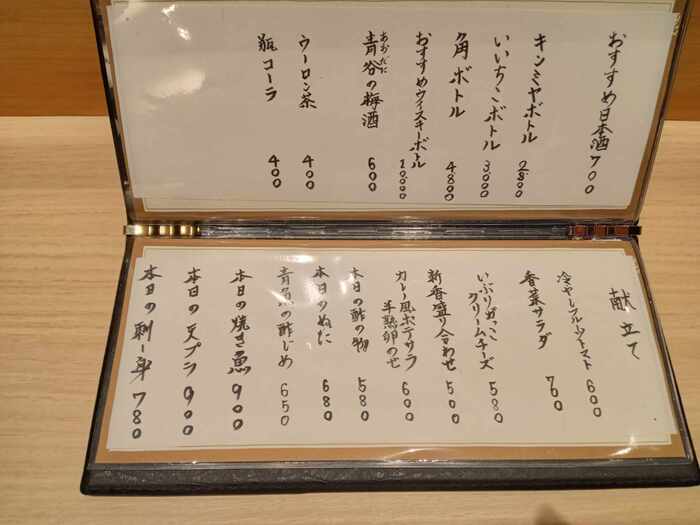 おすすめ日本酒 700
キンミヤボトル 2800
いいちこボトル 3000
角ボトル 4800
おすすめウイスキーボトル 10000
青谷の梅酒 600
あおだに
ウーロン茶 400
瓶コーラ 400
献立て
冷やしフルーツトマト 600
香菜サラダ 700
いぶりがっこ
クリームチーズ 580
新香盛り合わせ 500
カレー風ポテサラ
半熟卵のせ 600
本日の酢の物 580
本日のぬた 680
青魚の酢じめ 650
本日の焼き魚 900
本日の天プラ 900
本日の刺し身 780